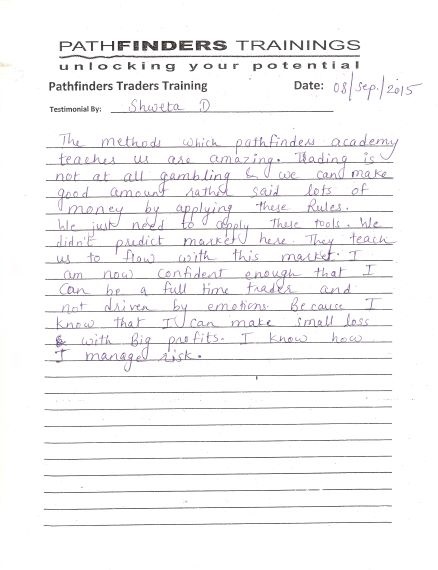 PATHFINDERS TRAININGS
unlocking your potential
Pathfinders Traders Training Date: 08/Sep./2015
Testimonial By: Shweta D
The methods which pathfinders academy
teaches us are amazing. Trading is
not at all gambling & we can make
good amount rather said lots of
money by applying these Rules.
We just need to apply these tools. We
didn't predict market here. They teach
us to flow with this market. I
am now confident enough that I
can be a full time trader and
not driven by emotions. Because I
know that I can make small loss
& with Big profits. I know how
I manage risk.